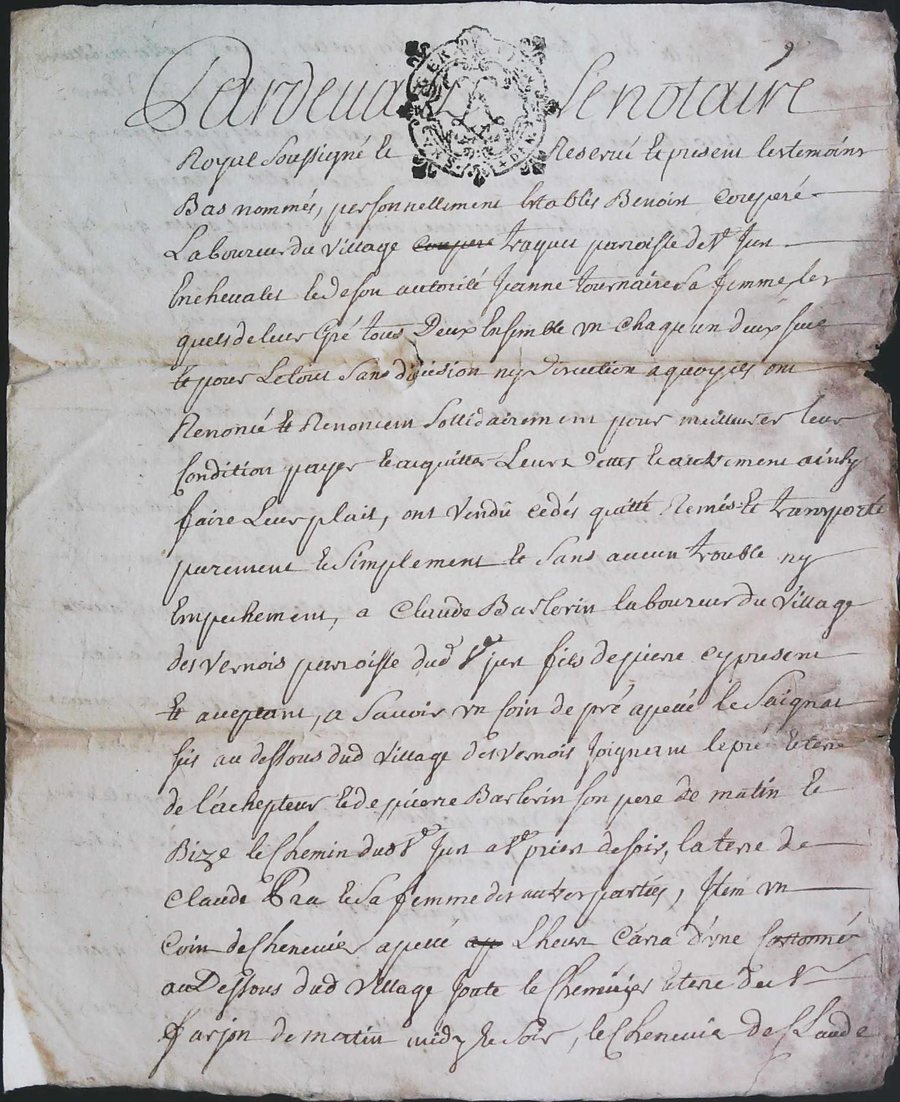 Pardevant Le notaire
Royal Soussigné et Reservé et present les temoins
Bas nommés, personnellement Establis Benoist Couperé
Laboureur du Village Coupere traque paroisse de St Jun
Enchevalet et de son autorité Jeanne tournaire Sa femme, les
quels de leur Gré tous Deux Ensemble un chaqu'un deux seul
et pour Le tout Sans division ny a quoy ils ont
Renoncé et Renoncent Sollidairement pour meilleurer leur
Condition payer et acquitter Leurs dettes et autrement ainsy
faire Leur plait, ont Vendu cedés quitté Remés et transporté
purement et Simplement et Sans aucun trouble ny
Empechement, a Claude Barlerin laboureur du Village
des Vernois paroisse dud St Jun fils de pierre cy present
et aceptant, a Savoir un Coin de pré apellé le Saignat
sis au dessous dud Village des Vernois Joignent le pré et terre
de l'achepteur et de pierre Barlerin son pere de matin et
Bize le Chemin dud St Jun a St prien de soir, la terre de
Claude Pra et Sa femme des autres parties, Item un
Coin de Chenevie apellé
au Dessous dud Village Joute le et terre de
farjon de matin midy et Soir, le Chenevie de Claude